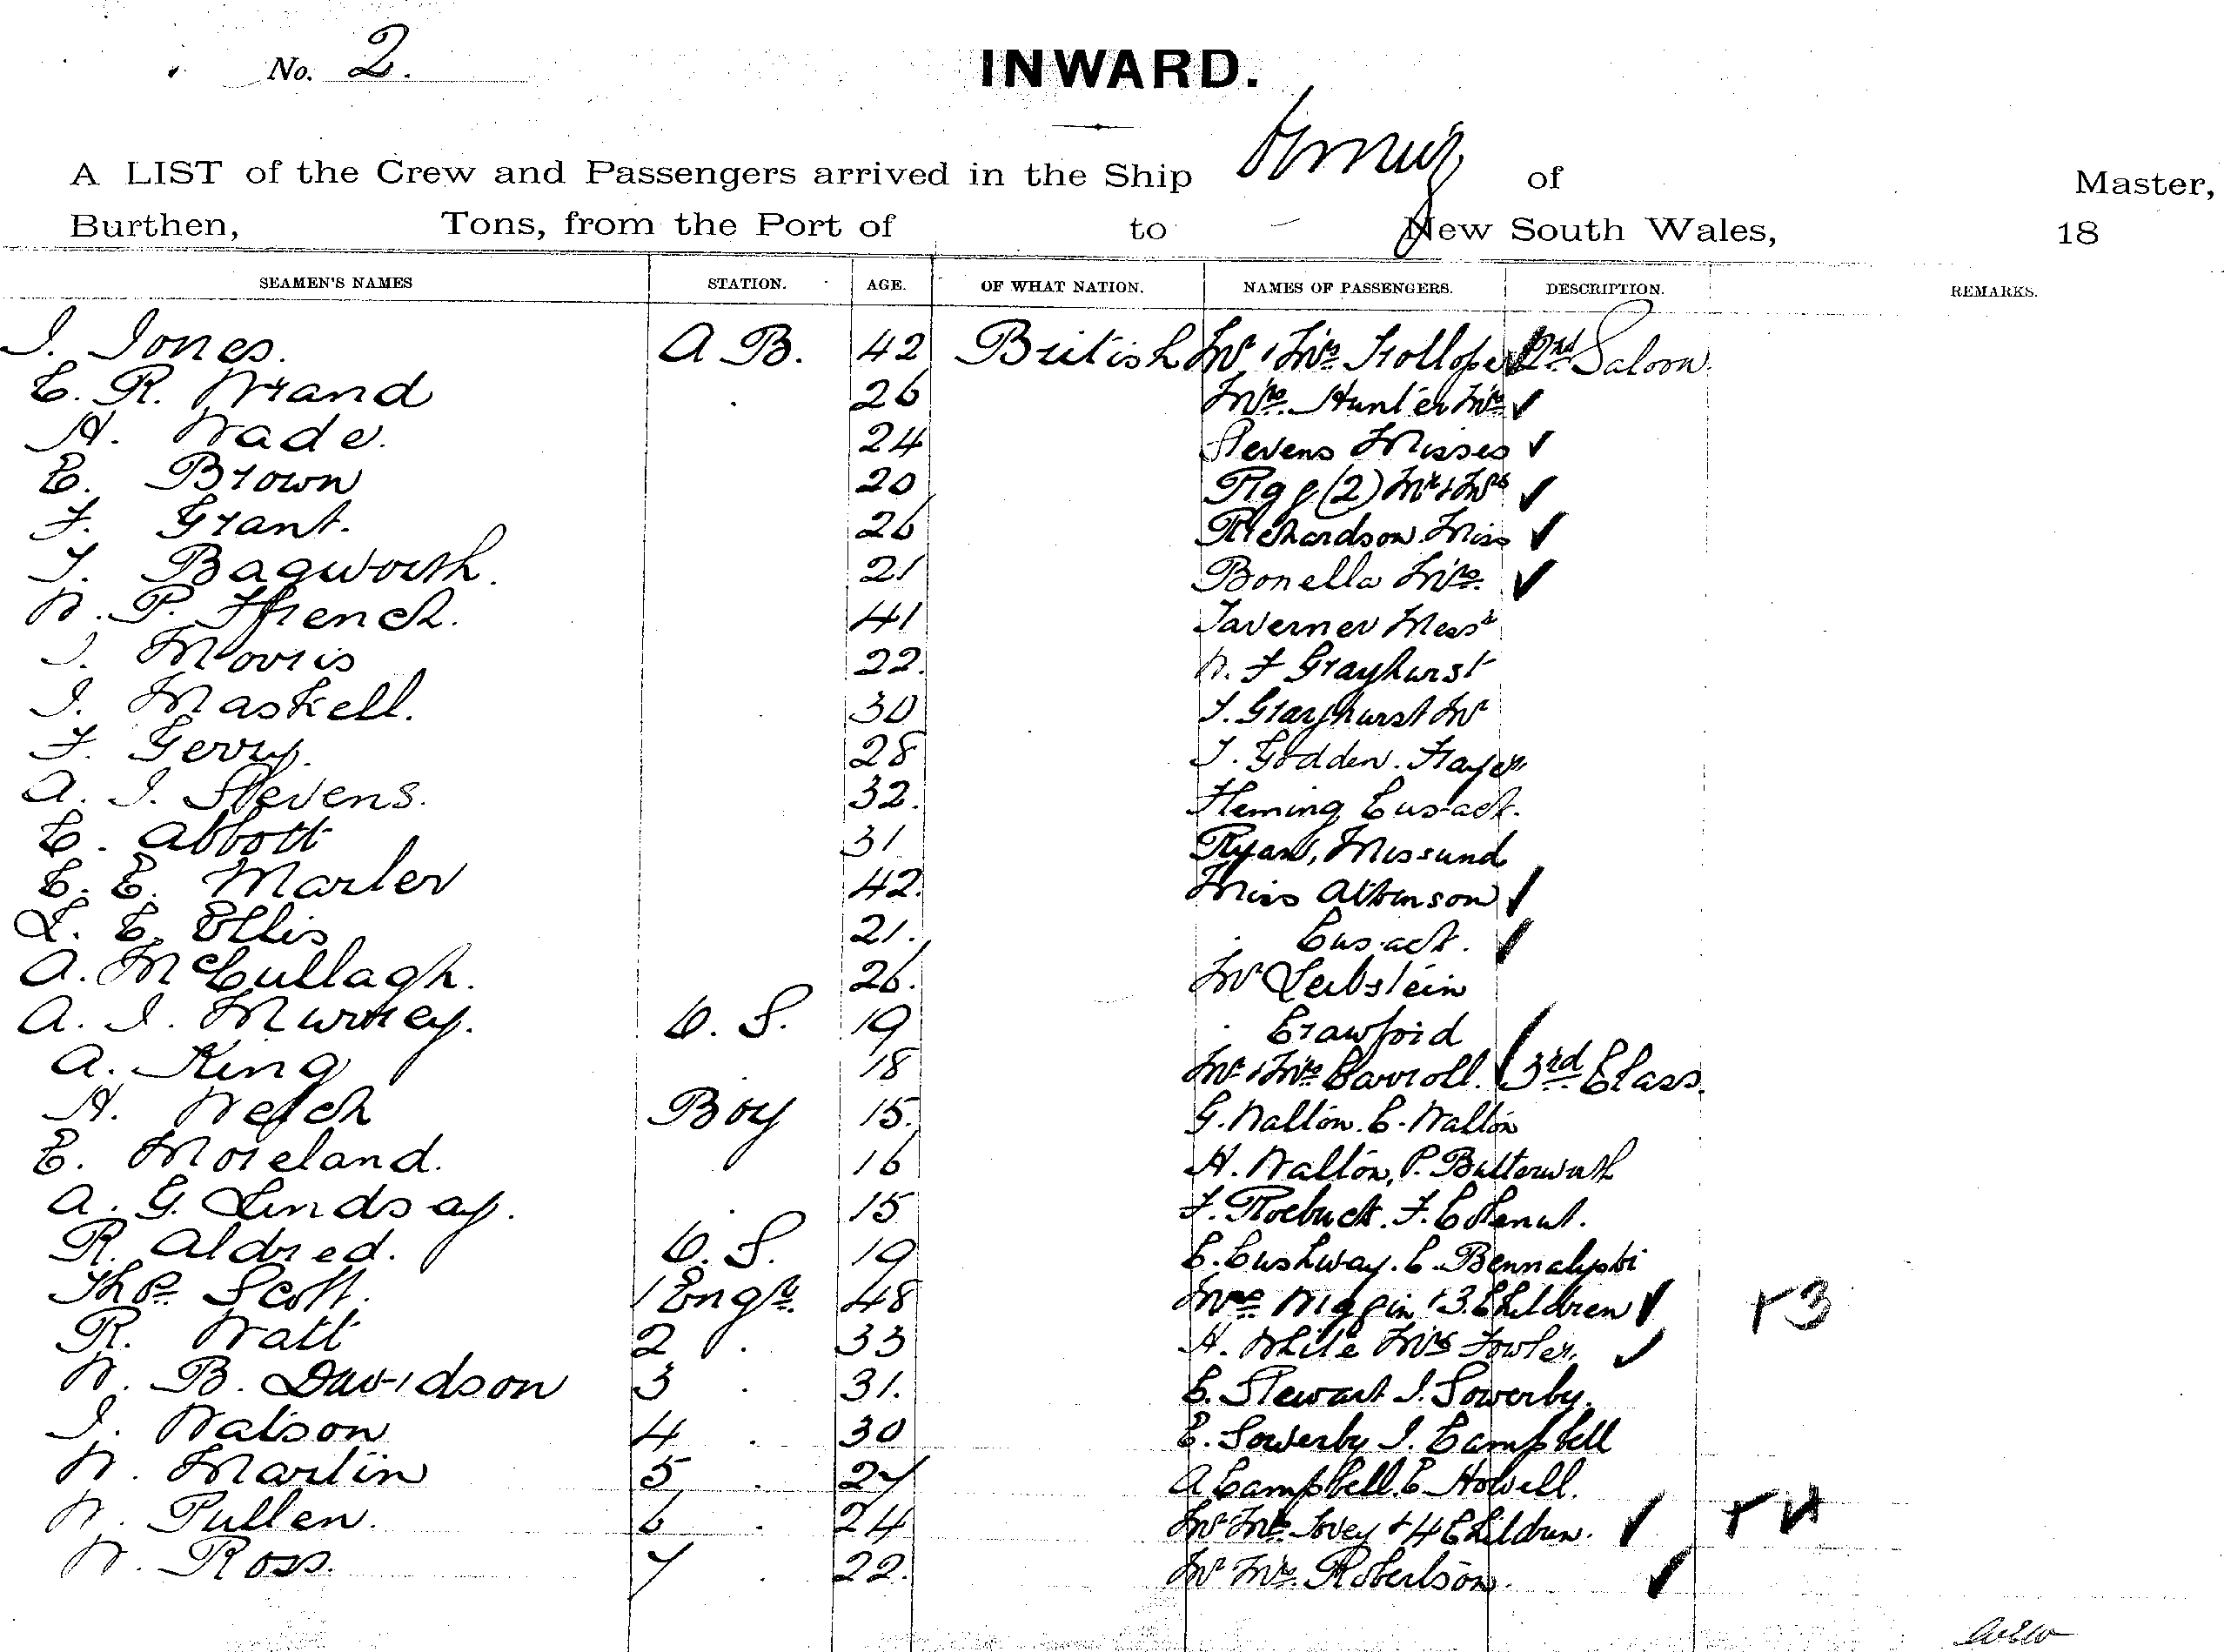 No. 2.
INWARD.
A LIST of the Crew and Passengers arrived in the Ship Ormuz of Master,
Burthen, Tons, from the Port of to New South Wales, 18
SEAMEN'S NAMES STATION. AGE. OF WHAT NATION. NAMES OF PASSENGERS. DESCRIPTION. REMARKS.
J. Jones. A B. 42 British Mr & Mrs Trollope 2nd Saloon.
C. R. Wrand 26 Mrs. Hunter Mrs
H. Wade. 24 Stevens Misses
E. Brown 20 Pigg (2) Mr & Mrs
F. Grant. 26 Richardson Miss
T. Bagworth. 21 Bonella Mrs.
W. P. Ffrench. 41 Taverner Messrs
J. Morris 22. W. F Grayhurst
J. Maskell. 30 T. Grayhurst Mr
F. Gerry. 28 T. Godden. Hayes
A. J. Stevens. 32. Fleming Cusack.
C. Abbott 31 Ryan,
C. E. Marler 42. Miss Atkinson
L. C. Ellis 21. Cusack.
A. McCullagh. 26. Mr Leibstein
A. J. Murrey. O. S. 19 Crawford
A. King 18 Mr & Mrs Carroll. 3rd Class.
H. Welch Boy 15. G. Walton. C. Walton
E. Moreland. 16 H. Walton, P. Butterworth
A. G. Lindsay. 15 F. Roebuck. F.
R. Aldred. O. S. 19 C. Cushway. C.
Thos Scott. 1 Engr. 48 Mrs Wiggin & 3 Children + 3
R. Watt 2 . 33 H. White Mrs Fowler.
W. B. Davidson 3 . 31. C. Stewart J. Sowerby.
J. Watson 4 . 30 E. Sowerby J. Campbell
W. Martin 5 . 27 A Campbell. C Howell.
W. Pullen. 6 . 24 Mr Mrs Tovey & 4 Children. + 4
W. Ross. 7 . 22. Mr Mrs. Robertson.